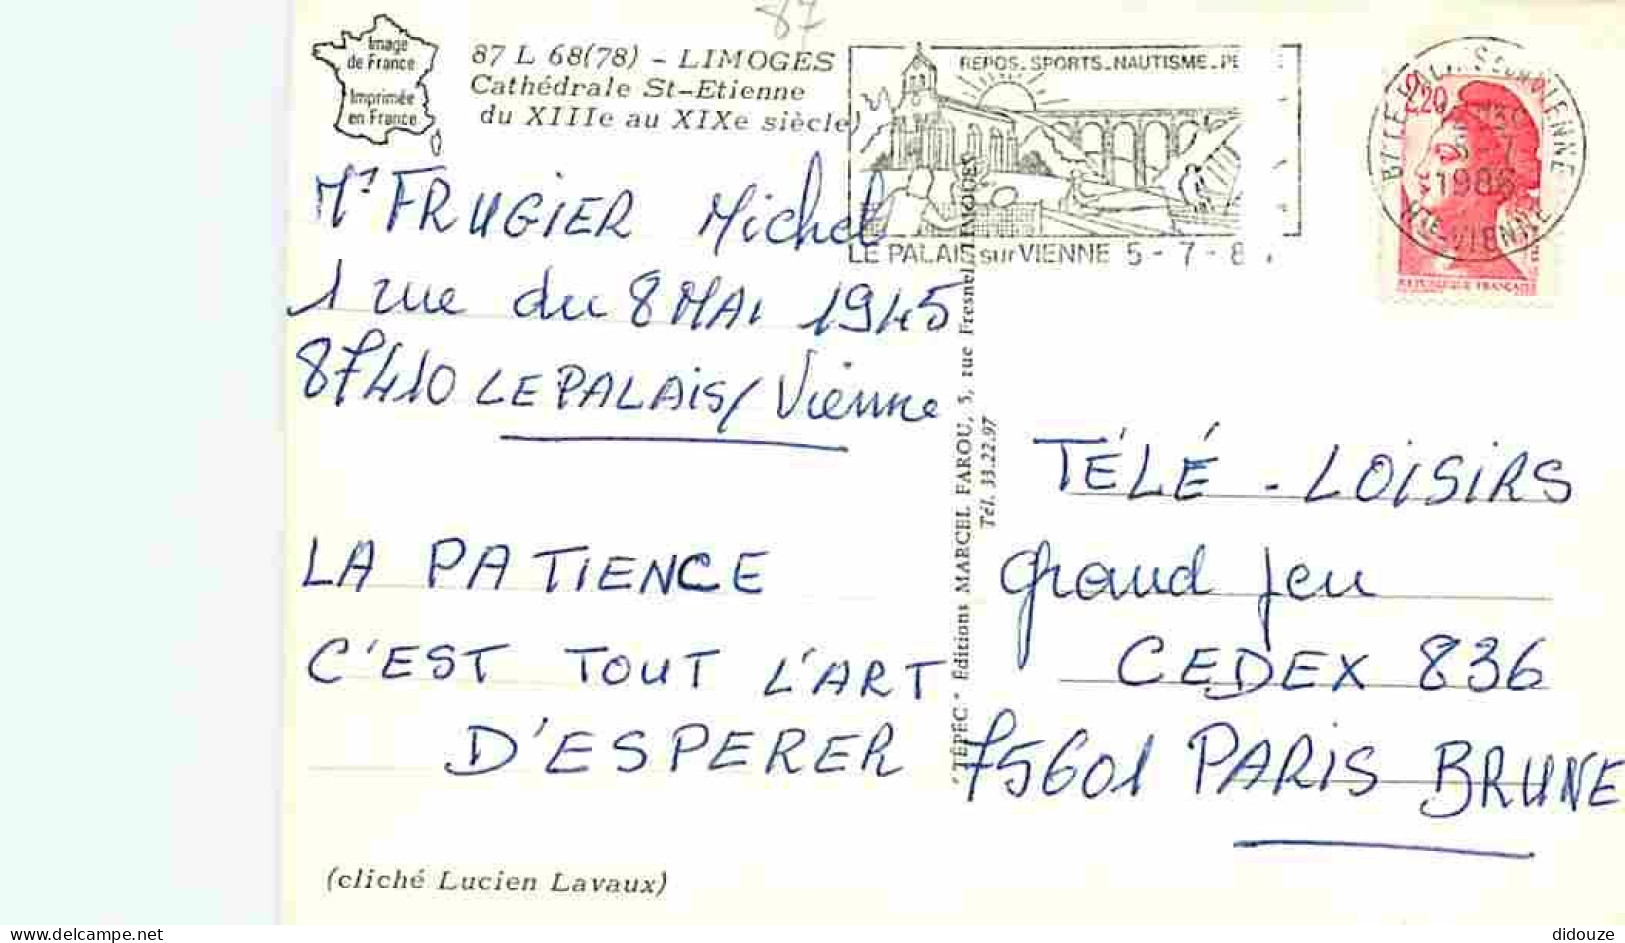 87
Image
de France
Imprimée
en France
87 L 68(78) - LIMOGES
Cathédrale St-Etienne
du XIIIe au XIXe siècle)
REPOS-SPORTS-NAUTISME-PE
LE PALAIS sur VIENNE 5-7-8
2,20
1986
HTE-VIENNE
REPUBLIQUE FRANÇAISE
Mr FRUGIER Michel
1 rue du 8 MAI 1945
87410 LE PALAiS/Vienne
LA PATIENCE
C'EST TOUT L'ART
D'ESPERER
"TÉPÉC" Éditions MARCEL FAROU, 5, rue Fresnel, LIMOGES
Tél. 33.22.97
TÉLÉ-LOiSiRS
Grand Jeu
CEDEX 836
75601 PARIS BRUNE
(cliché Lucien Lavaux)
www.delcampe.net
didouze